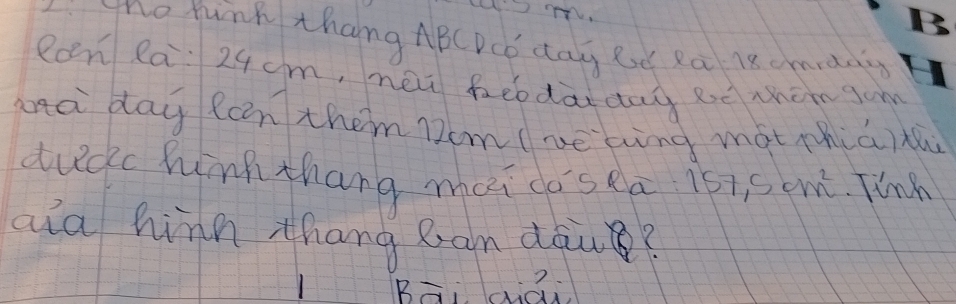 m.
Cho hình thang ABCD có đáy bé là 18 cm, đáy
lớn là: 24 cm, nếu kéo dài đáy bé thêm 9cm
và đáy lớn thêm 12cm (về cùng một phía) thì
được hình thang mới có S là: 157,5 cm². Tính
của hình thang ban đầu?
Bài giải
B
H